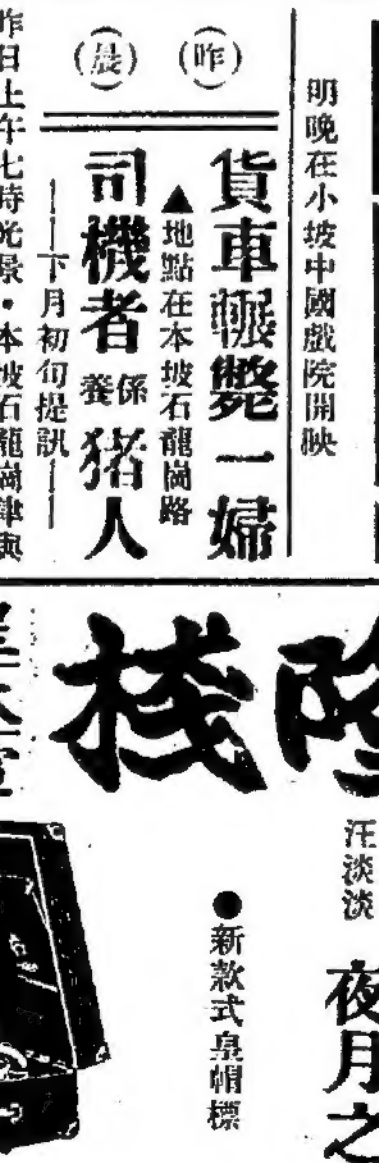 明晚在小坡中國戲院開映
(昨)(晨)
貨車輾斃一婦
▲地點在本坡石龍崗路
司機者係養猪人
——下月初旬提訊——
昨日上午七時光景・本坡石龍崗律與
棧
汪淡淡 夜月之
●新款式皇帽標